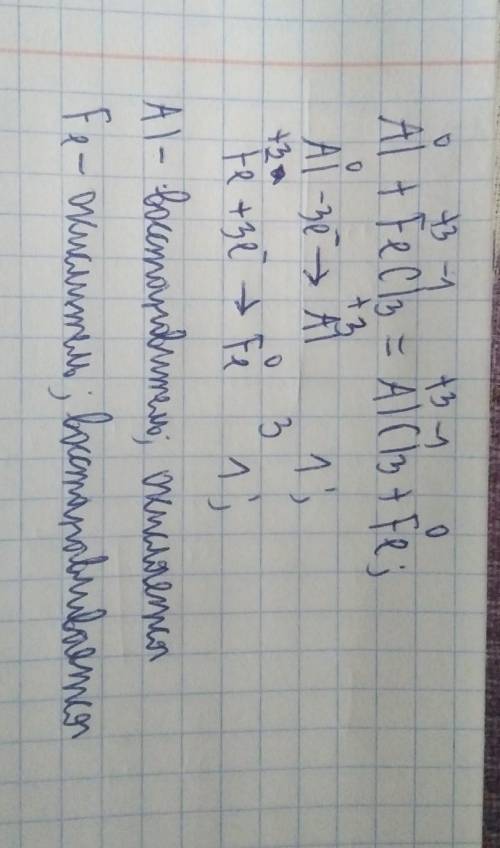 Al⁰ + Fe⁺³Cl₃⁻¹ = Al⁺³Cl₃⁻¹ + Fe⁰;
Al⁰ -3e⁻ → Al⁺³ 1;
3
Fe⁺³ +3e⁻ → Fe⁰ 1;
Al - восстановитель; окисляется
Fe - окислитель; восстанавливается